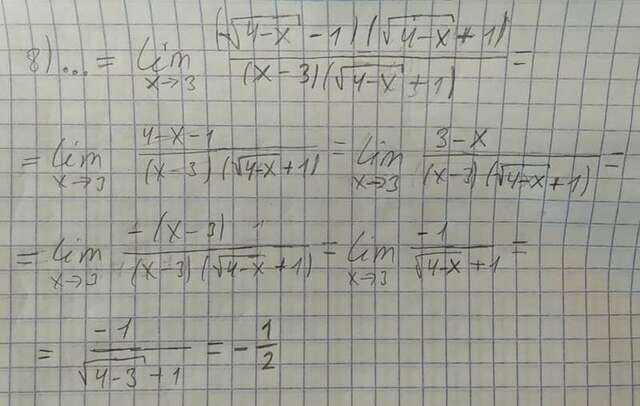 8) ... = lim_{x→3} \frac{(\sqrt{4-x} - 1)(\sqrt{4-x} + 1)}{(x-3)(\sqrt{4-x} + 1)} =
= lim_{x→3} \frac{4-x-1}{(x-3)(\sqrt{4-x}+1)} = lim_{x→3} \frac{3-x}{(x-3)(\sqrt{4-x}+1)} =
= lim_{x→3} \frac{-(x-3) 1}{(x-3)(\sqrt{4-x}+1)} = lim_{x→3} \frac{-1}{\sqrt{4-x}+1} =
= \frac{-1}{\sqrt{4-3}+1} = -\frac{1}{2}